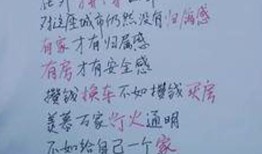 对这座城市仍然没有归属感
有家才有归属感
有房才有安全感
攒钱换车不如攒钱买房
羡慕万家灯火通明
不如给自己一个家